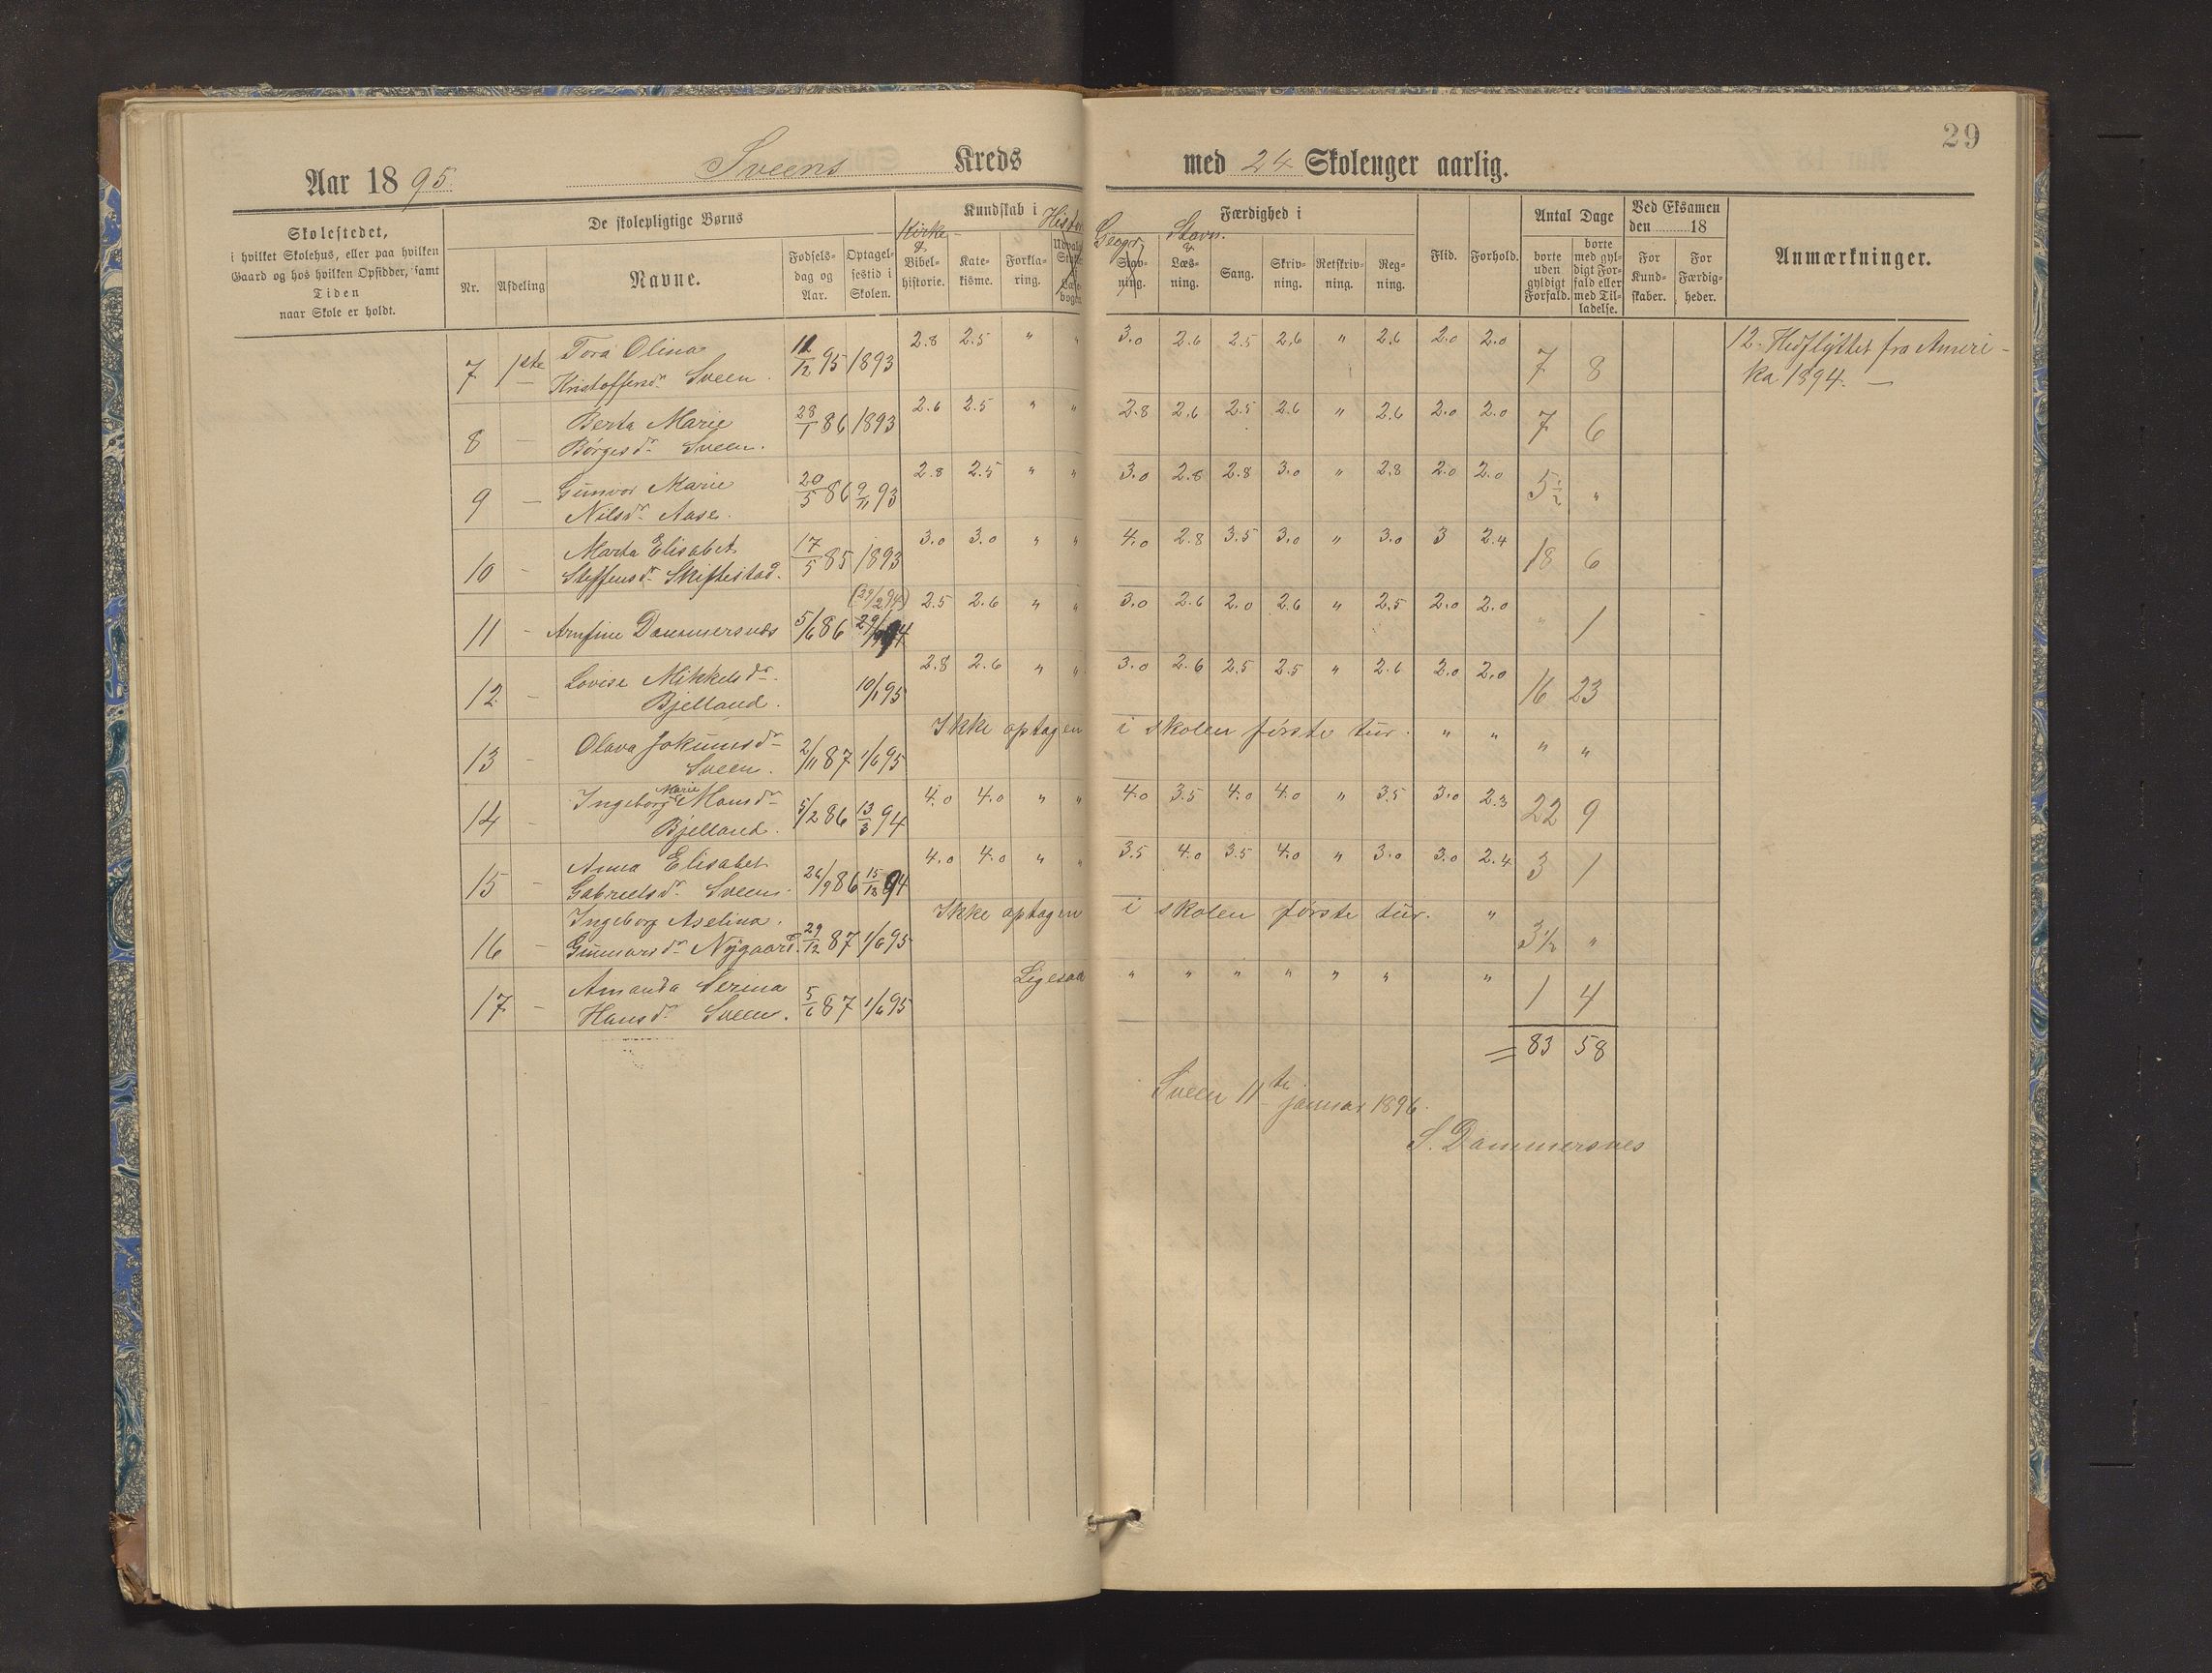 29
Aar 1895. Sveens Kreds med 24 Skoleuger aarlig.
Skolestedet,
i hvilket Skolehus, eller paa hvilken
Gaard og hos hvilken Opsidder, samt
Tiden
naar Skole er holdt.
De skolepligtige Børns
Nr. Afdeling Navne. Fødsels- dag og Aar. Optagel- sestid i Skolen.
Kundskab i
Kirke- & Bibel- historie. Kate- kisme. Forkla- ring. Histor
Færdighed i
Geogr. Stav- ning. Stavn. & Læs- ning. Sang. Skriv- ning. Retskriv- ning. Reg- ning.
Flid. Forhold.
Antal Dage
borte uden gyldigt Forfald. borte med gyl- digt For- fald eller med Til- ladelse.
Ved Eksamen
den 18
For Kund- skaber. For Færdig- heder.
Anmærkninger.
7 1ste Tora Olina Kristoffersdr. Sveen. 12/12 95 1893 2.8 2.5 " " 3.0 2.6 2.5 2.6 " 2.6 2.0 2.0 7 8 12. Hidflyttet fra Ameri-
ka 1894. —
8 — Berta Marie Børgesdr. Sveen. 28/1 86 1893 2.6 2.5 " " 2.8 2.6 2.5 2.6 " 2.6 2.0 2.0 7 6
9 — Gunvor Marie Nilsdr. Aase. 20/5 86 9/11 93 2.8 2.5 " " 3.0 2.8 2.8 3.0 " 2.8 2.0 2.0 5 1/2 "
10 - Marta Elisabet Steffensdr. Skiftestad. 17/5 85 1893 3.0 3.0 " " 4.0 2.8 3.5 3.0 " 3.0 3 2.4 18 6
11 - Arnfine Dammersnes 5/6 86 (29/2 94) 2.5 2.6 " " 3.0 2.6 2.0 2.6 " 2.5 2.0 2.0 " 1
12 - Lovise Mikkelsdr. Bjelland. 10/1 95 2.8 2.6 " " 3.0 2.6 2.5 2.5 " 2.6 2.0 2.0 16 23
13 - Olava Jokumsdr. Sveen. 2/11 87 1/6 95 Ikke optagen i skolen første tur. " " " "
14 - Ingeborg Marie Monsdr. Bjelland. 5/2 86 13/3 94 4.0 4.0 " " 4.0 3.5 4.0 4.0 " 3.5 3.0 2.3 22 9
15 - Anna Elisabet Gabrielsdr. Sveen. 26/9 86 15/18 94 4.0 4.0 " " 3.5 4.0 3.5 4.0 " 3.0 3.0 2.4 3 1
16 - Ingeborg Aselina Gunnarsdr. Nygaard. 29/12 87 1/6 95 Ikke optagen i skolen første tur. " 3 1/2 "
17 - Amanda Serina Hansdr. Sveen. 5/6 87 1/6 95 Ligesaa " " " " " " " 1 4
= 83 58
Sveen 11te januar 1896.
S. Dammersnes